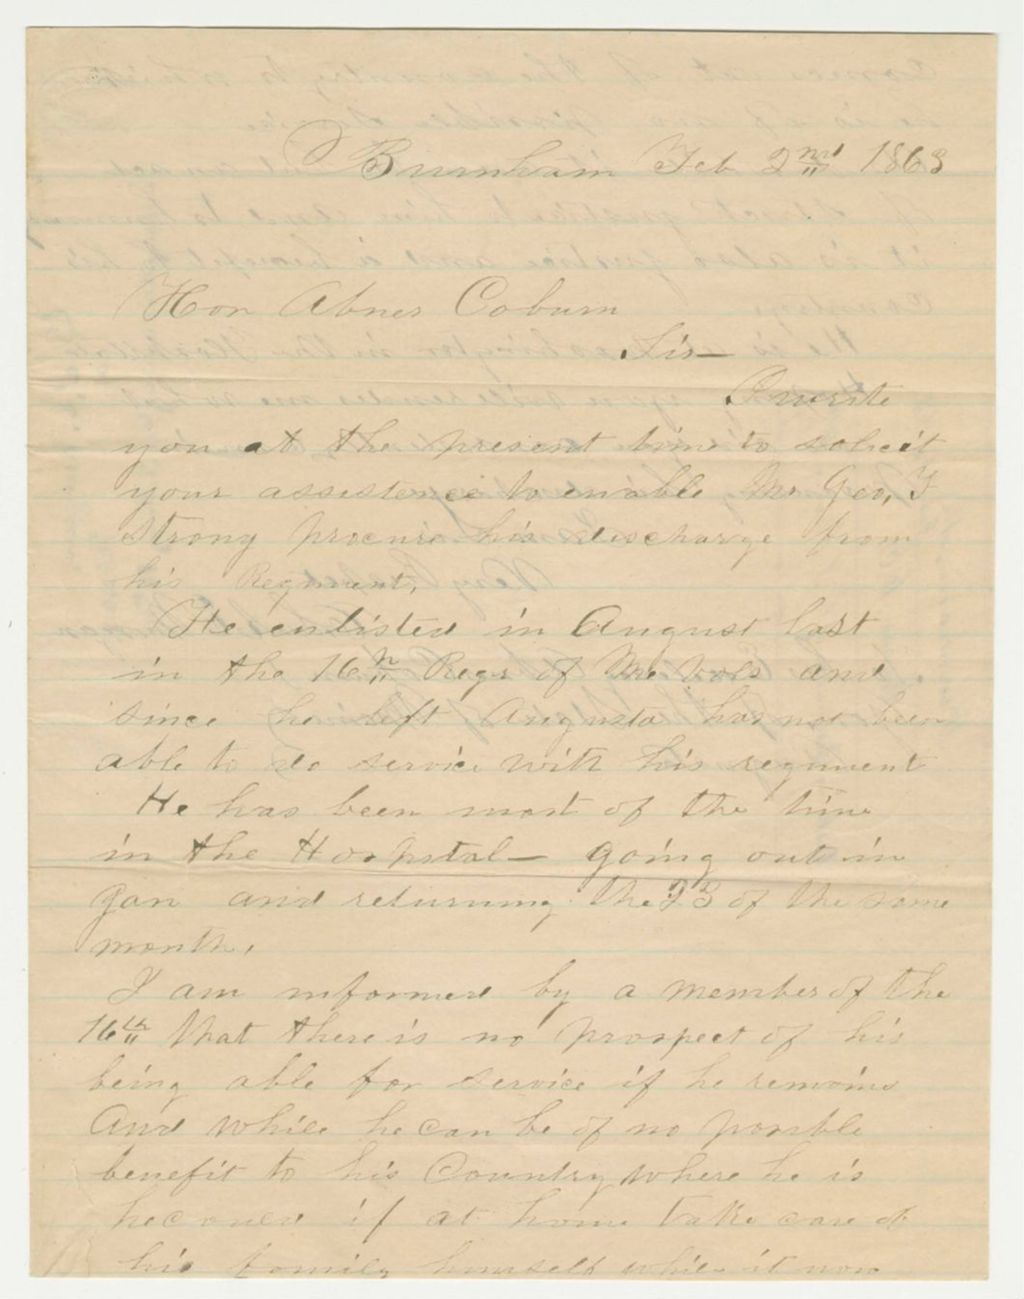 Burnham Feb 2nd 1863
Hon Abner Coburn
Sir
I write
you at the present time to solicit
your assistence to enable Mr Geo, F
Strong procure his discharge from
his Regment,
He enlisted in August last
in the 16th Regt of Me Vols and
since he left Augusta has not been
able to do service with his regiment
He has been most of the time
in the Hospital — going out in
Jan and returning the 23 of the same
month,
I am informed by a member of the
16th that there is no prospect of his
being able for service if he remains
And while he can be of no possible
benefit to his Country where he is
he could if at home take care of
his family himself while it now